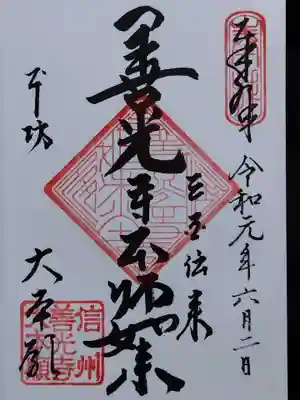 奉拝
令和元年六月二日
三国伝来
善光寺本師如来
本坊
大本願
信州
善光寺
大本願